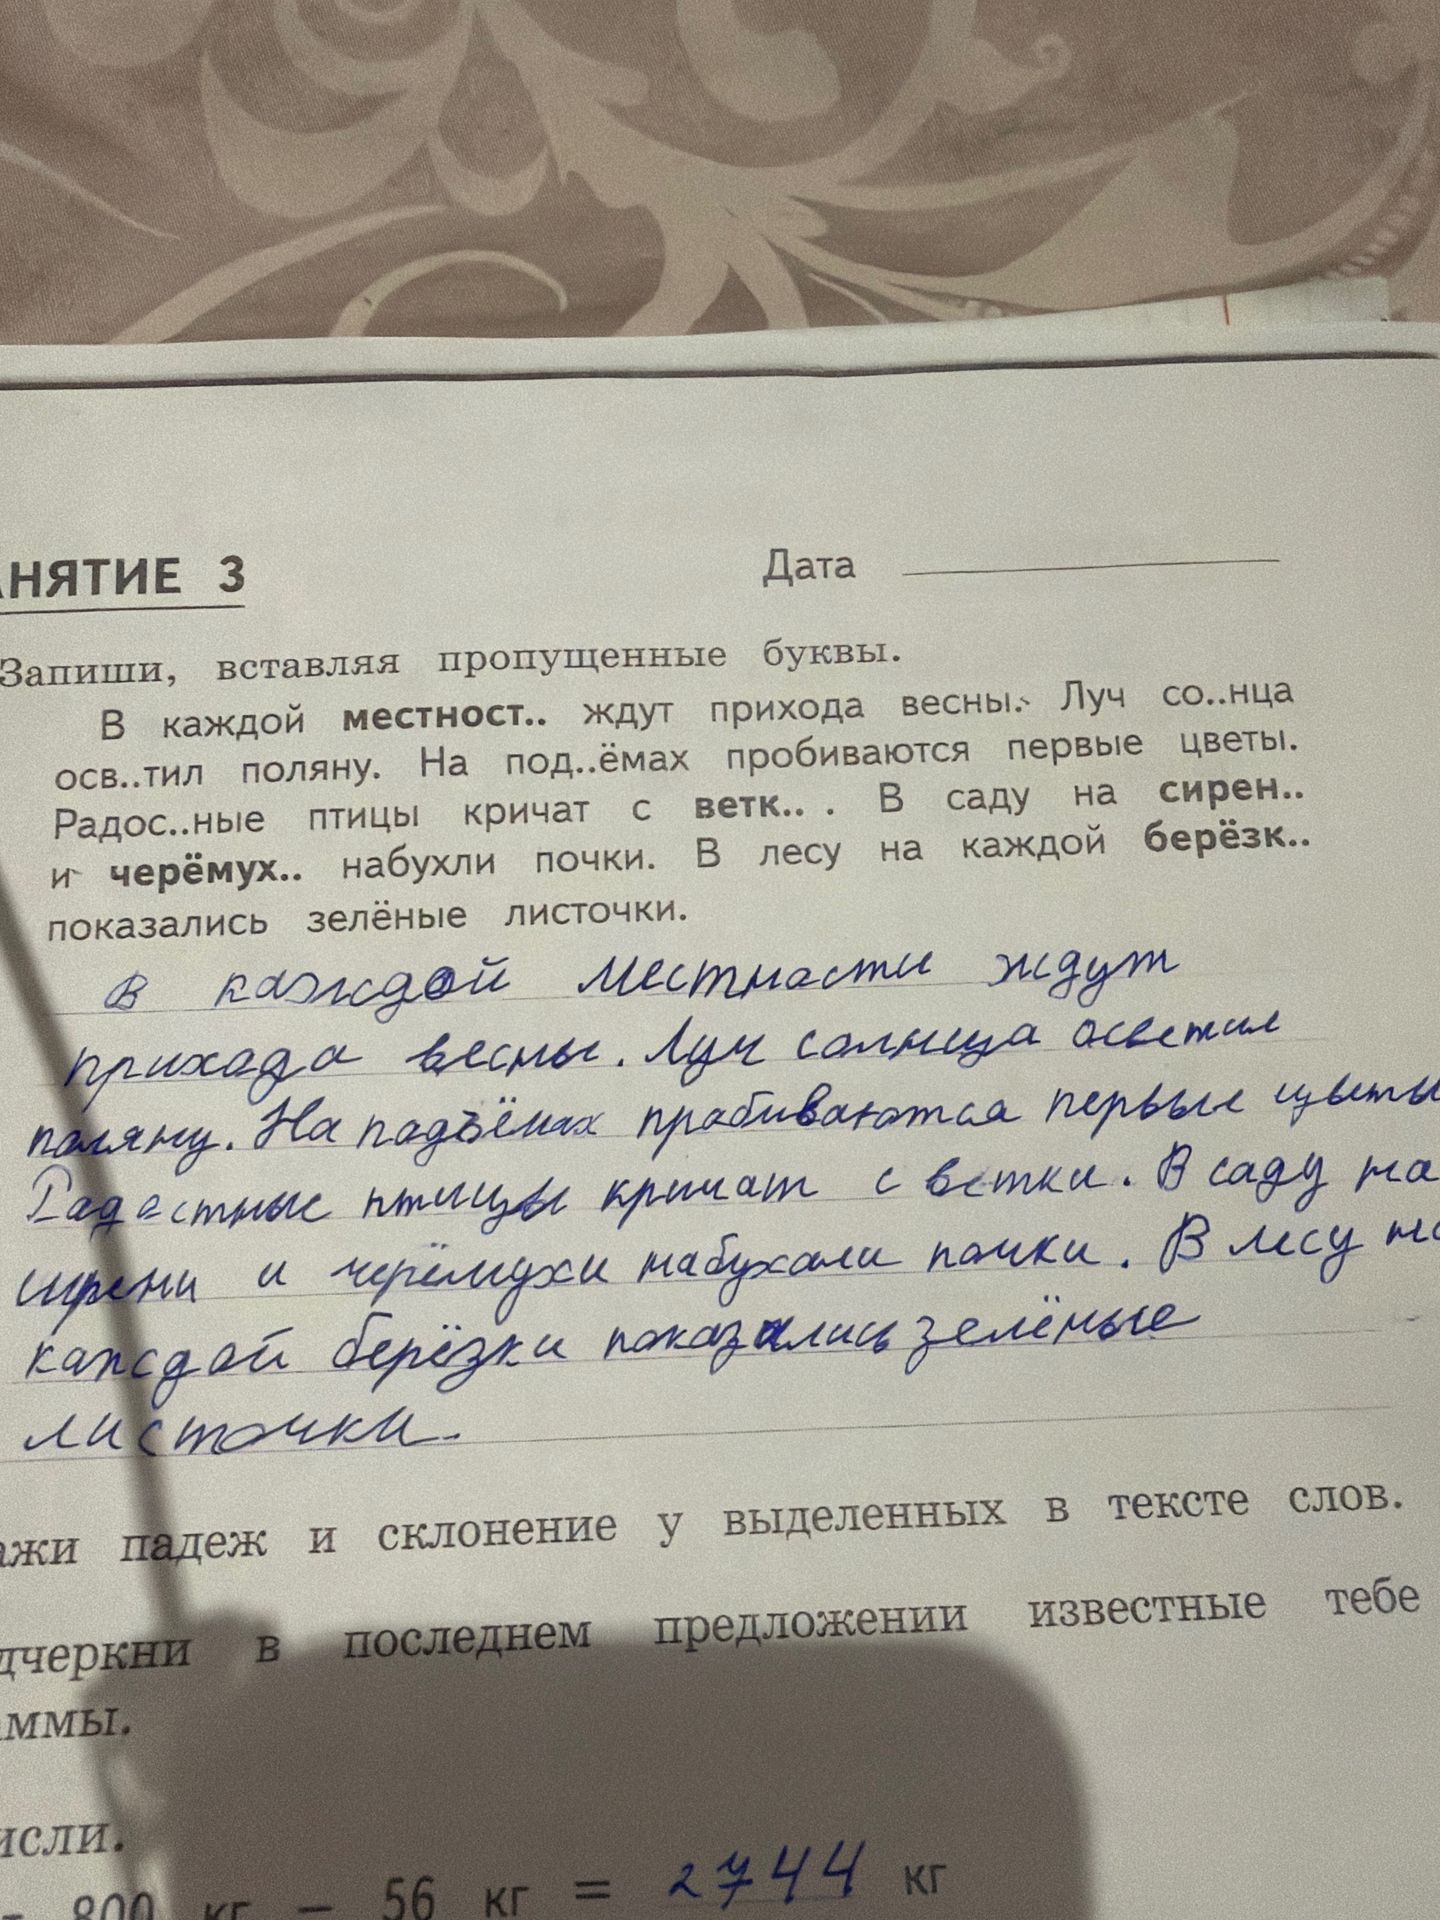 АНЯТИЕ 3
Дата
Запиши, вставляя пропущенные буквы.
В каждой местност.. ждут прихода весны. Луч со..нца
осв..тил поляну. На под..ёмах пробиваются первые цветы.
Радос..ные птицы кричат с ветк.. . В саду на сирен..
и черёмух.. набухли почки. В лесу на каждой берёзк..
показались зелёные листочки.
В каждой местности ждут
прихода весны. Луч солнца осветил
поляну. На подъёмах пробиваются первые цветы
Радостные птицы кричат с ветки. В саду на
сирени и черёмухи набухали почки. В лесу на
каждой берёзки показались зелёные
листочки.
ажи падеж и склонение у выделенных в тексте слов.
дчеркни в последнем предложении известные тебе
аммы.
исли.
800 кг − 56 кг = 2744 кг